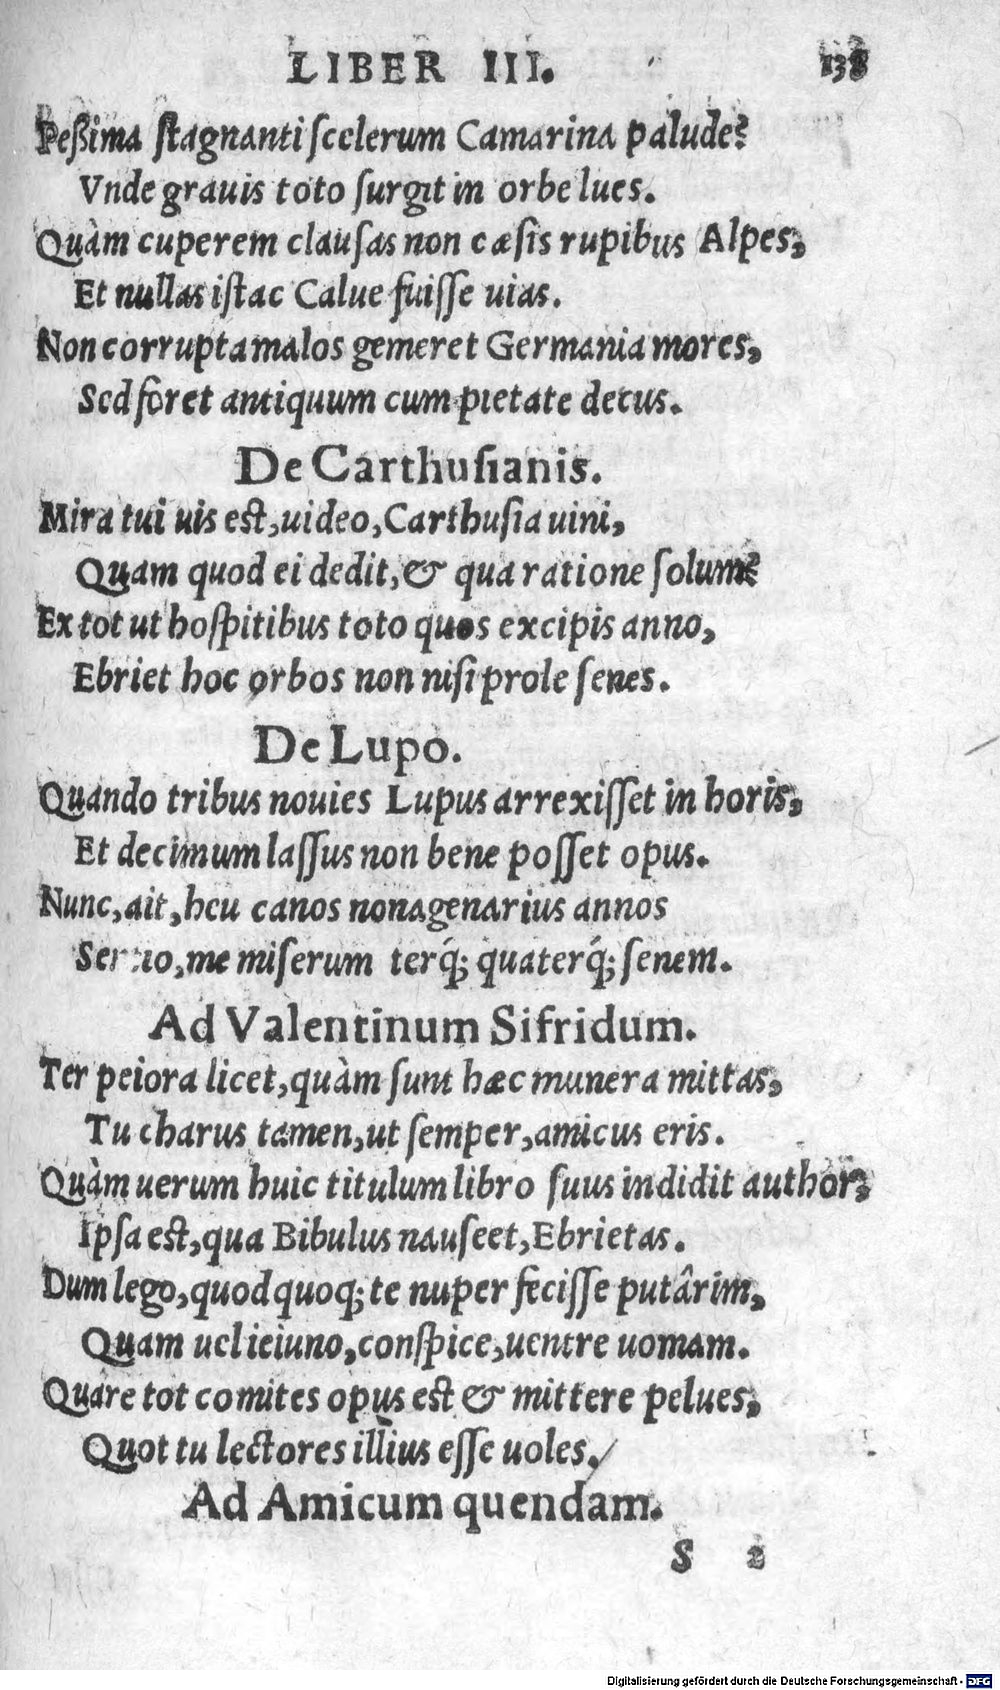 LIBER III. 138
Peßima ſtagnanti ſcelerum Camarina palude?
Vnde grauis toto ſurgit in orbe lues.
Quàm cuperem clauſas non cæſis rupibus Alpes,
Et nullas iſtac Calue fuiſſe uias.
Non corrupta malos gemeret Germania mores,
Sed foret antiquum cum pietate decus.
De Carthuſianis.
Mira tui uis eſt, uideo, Carthuſia uini,
Quam quod ei dedit, & qua ratione ſolum?
Ex tot ut hoſpitibus toto quos excipis anno,
Ebriet hoc orbos non niſi prole ſenes.
De Lupo.
Quando tribus nouies Lupus arrexiſſet in horis,
Et decimum laſſus non bene poſſet opus.
Nunc, ait, heu canos nonagenarius annos
Sentio, me miſerum terq́; quaterq́; ſenem.
Ad Valentinum Sifridum.
Ter peiora licet, quàm ſunt hæc munera mittas,
Tu charus tamen, ut ſemper, amicus eris.
Quàm uerum huic titulum libro ſuus indidit author,
Ipſa eſt, qua Bibulus nauſeet, Ebrietas.
Dum lego, quod quoq; te nuper feciſſe putârim,
Quam uel ieiuno, conſpice, uentre uomam.
Quare tot comites opus eſt & mittere pelues,
Quot tu lectores illius eſſe uoles.
Ad Amicum quendam.
S 2
Digitalisierung gefördert durch die Deutsche Forschungsgemeinschaft - DFG